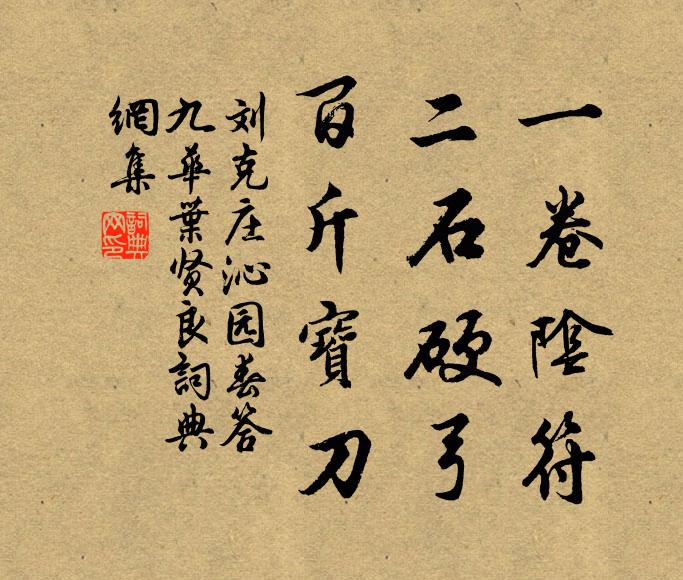 一卷陰符
二石硬弓
百斤寶刀
刘克庄沁园春答
九華葉贤良詞典
網集
詞典
网印